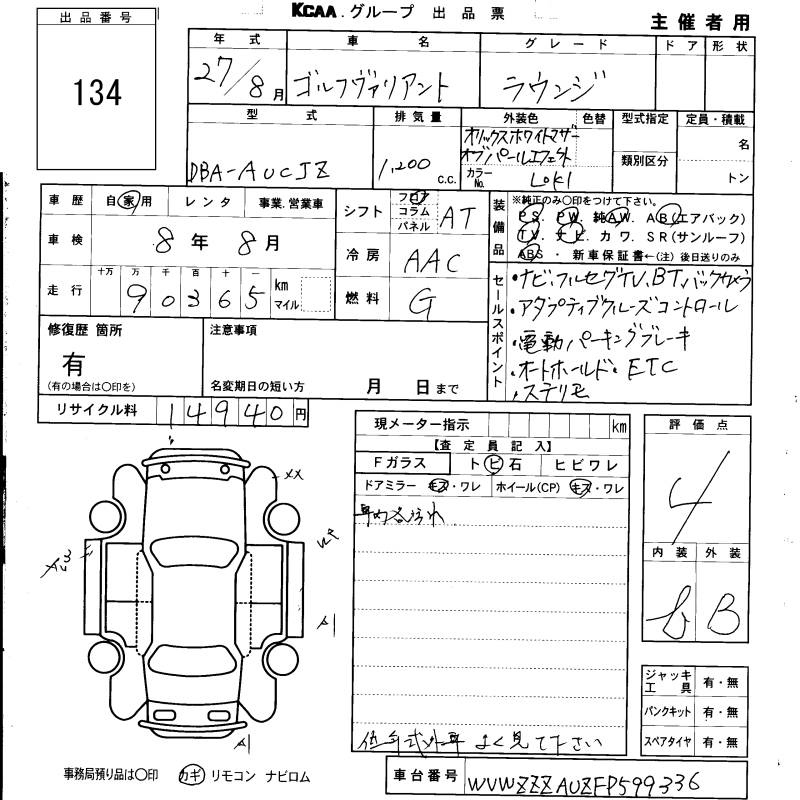 KCAA.グループ 出品票
主催者用
出品番号
134
年式 車名 グレード ドア 形状
27/8月 ゴルフヴァリアント ラウンジ
型式 排気量 外装色 色替 型式指定 定員・積載
DBA-AUCJZ 1,200 c.c.
オリックスホワイトマザー
オブパールエフェクト
カラーNo. L0K1
類別区分
名
トン
車歴 自家用 レンタ 事業.営業車
車検 8年8月
走行 十万 万 千 百 十 一
90365 km マイル
シフト フロア コラム パネル AT
冷房 AAC
燃料 G
装備品
※純正のみ〇印をつけて下さい。
PS. PW. 純AW. AB(エアバック)
TV. ナビ. カワ. SR(サンルーフ)
ABS・新車保証書←(注)後日送りのみ
セールスポイント
・ナビ,フルセグTV,BT,バックカメラ
・アダプティブクルーズコントロール
・電動パーキングブレーキ
・オートホールド・ETC
・ステリモ
修復歴 箇所
有
(有の場合は〇印を)
注意事項
名変期日の短い方 月 日まで
リサイクル料 14940円
現メーター指示 km
【査定員記入】
Fガラス トビ石 ヒビワレ
ドアミラー キズ・ワレ ホイール(CP) キズ・ワレ
評価点
4
内装 外装
b B
XX
A1
A1
ジャッキ工具 有・無
パンクキット 有・無
スペアタイヤ 有・無
よく見て下さい
事務局預り品は〇印 カギ リモコン ナビロム
車台番号 WVWZZZAUZFP599336